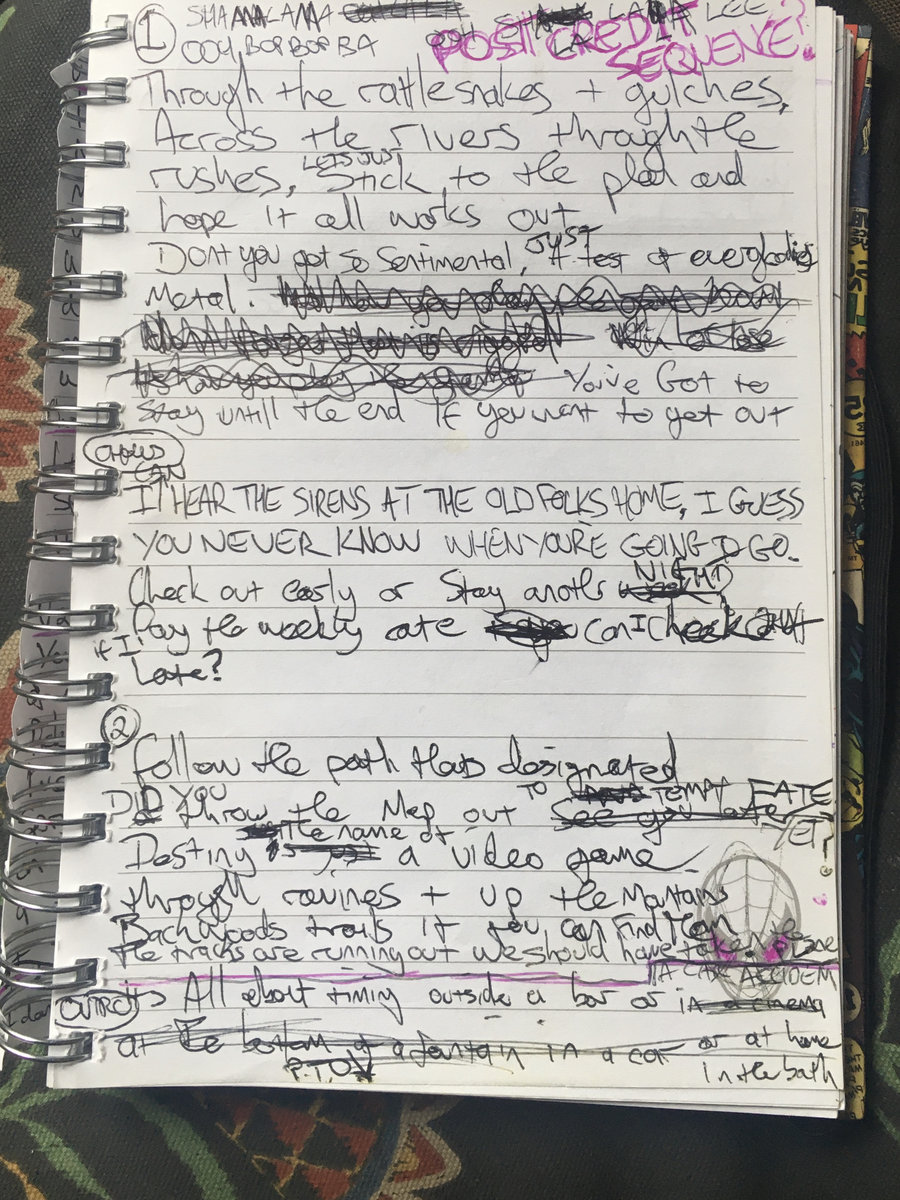 1 SHANANANANA LA LA LEE
OOH BOP BOP BA
POST CREDIT
SEQUENCE?
Through the rattlesnakes + gulches,
Across the rivers through the
LETS JUST
rushes, Stick to the plan and
hope it all works out
JUST
Dont you get so sentimental, A test of everybodies
Metal.
Win or lose
You've Got to
Stay untill the end If you want to get out
CHORUS
CAN
I HEAR THE SIRENS AT THE OLD FOLKS HOME, I GUESS
YOU NEVER KNOW WHEN YOU'RE GOING TO GO.
NIGHT
Check out early or Stay another
Pay the weekly rate can I check out
if I
Late?
2
Follow the path thats designated
DID YOU TO TEMPT FATE
throw the Map out See you late YET?
the name of
Destiny is just a video game
through ravines + up the Montans
Backwoods trails if you can find them
the tracks are running out we should have taken the
A CAR ACCIDENT
OUTRO
Its All about timing outside a bar or in a cinema
at the bottom of a fountain in a car or at home
P.T.O in the bath